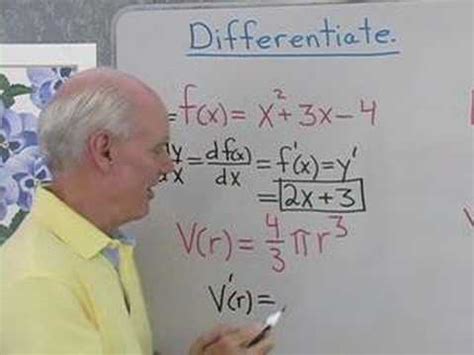 Differentiate.
= f(x) = x² + 3x - 4
dy/dx = df(x)/dx = f'(x) = y'
= 2x + 3
V(r) = 4/3 πr³
V'(r) =